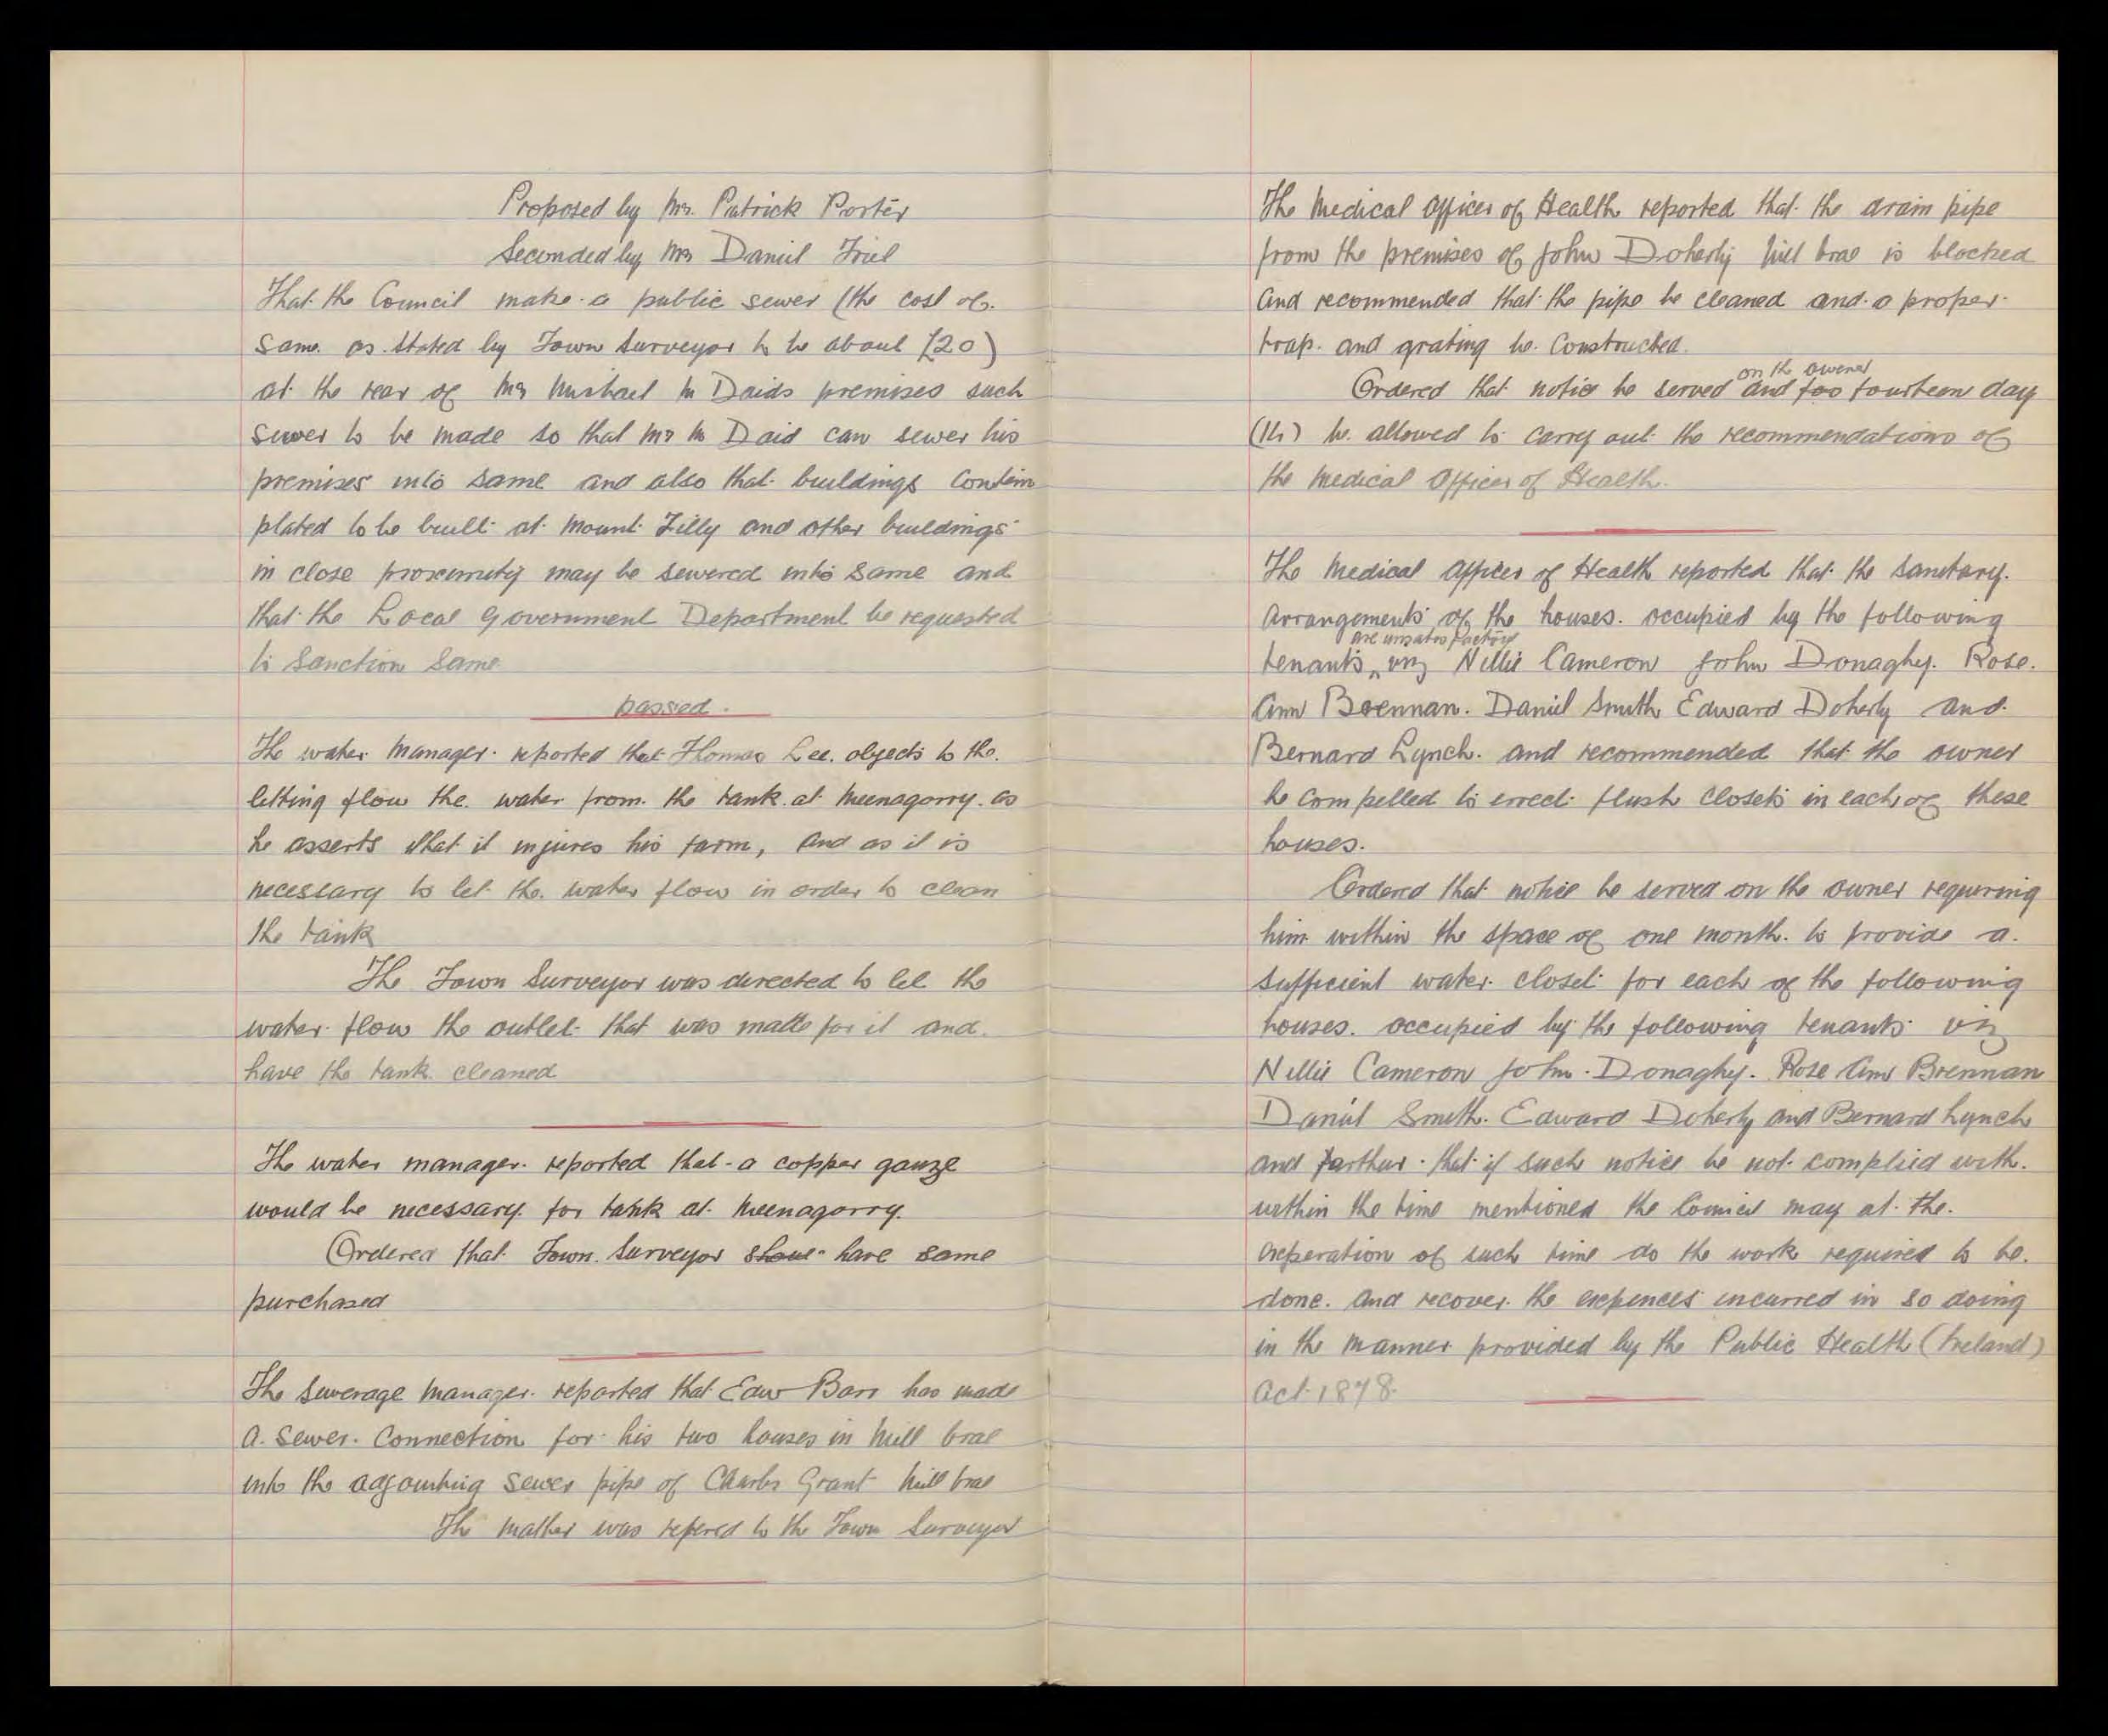 Proposed by Mr. Patrick Porter
Seconded by Mr Daniel Friel
That the Council make a public sewer (the cost of
same as stated by Town Surveyor to be about £20)
at the rear of Mr Michael Mc Daids premises such
sewer to be made so that Mr Mc Daid can sewer his
premises into same and also that buildings contem
plated to be built at Mount Tilly and other buildings
in close proximity may be sewered into same and
that the Local Government Department be requested
to sanction same
passed.
The water Manager reported that Thomas Lee. objects to the
letting flow the water from the tank at Meenagorry. as
he asserts that it injures his farm, and as it is
necessary to let the water flow in order to clean
the tank
The Town Surveyor was directed to let the
water flow the outlet that was made for it and
have the tank cleaned
The water manager reported that a copper gauze
would be necessary for tank at Meenagorry.
Ordered that Town Surveyor have same
purchased
The Sewerage Manager reported that Edw Barr has made
a sewer connection for his two houses in Mill brae
into the adjoining sewer pipe of Charles Grant Mill brae
The matter was refered to the Town Surveyor
The Medical Officer of Health reported that the drain pipe
from the premises of John Doherty Mill brae is blocked
and recommended that the pipe be cleaned and a proper
trap and grating be constructed.
on the owner
Ordered that notice be served and too fourteen day
(14) be allowed to carry out the recommendations of
the Medical Officer of Health.
The Medical Officer of Health reported that the sanitary
arrangements of the houses occupied by the following
are unsatisfactory
tenants viz Nellie Cameron John Donaghy. Rose
Ann Brennan. Daniel Smith Edward Doherty and
Bernard Lynch. and recommended that the owner
be compelled to erect flush closets in each of these
houses.
Ordered that notice be served on the owner requiring
him within the space of one month to provide a
sufficient water closet for each of the following
houses occupied by the following tenants viz
Nellie Cameron John Donaghy. Rose Ann Brennan
Daniel Smith. Edward Doherty and Bernard Lynch
and farthur that if such notice be not complied with
within the time mentioned the Council may at the
experation of such time do the work required to be
done. and recover the expences incurred in so doing
in the manner provided by the Public Health (Ireland)
Act 1878.